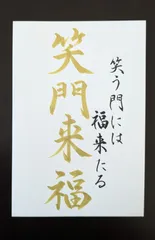 笑門来福
笑う門には
福来たる